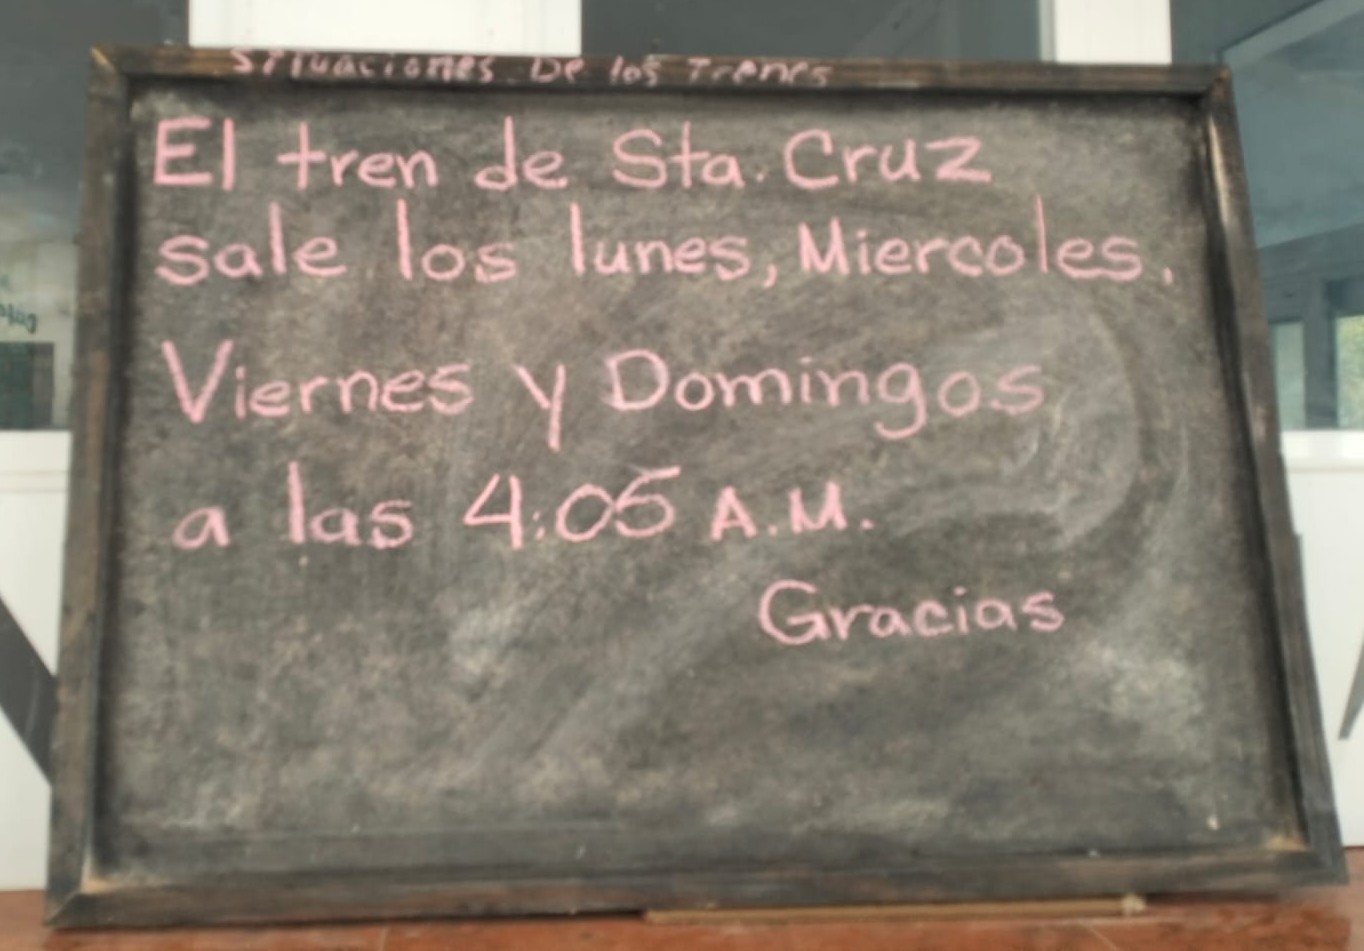 Situaciones De los Trenes
El tren de Sta. Cruz
sale los lunes, Miercoles,
Viernes y Domingos
a las 4:05 A.M.
Gracias